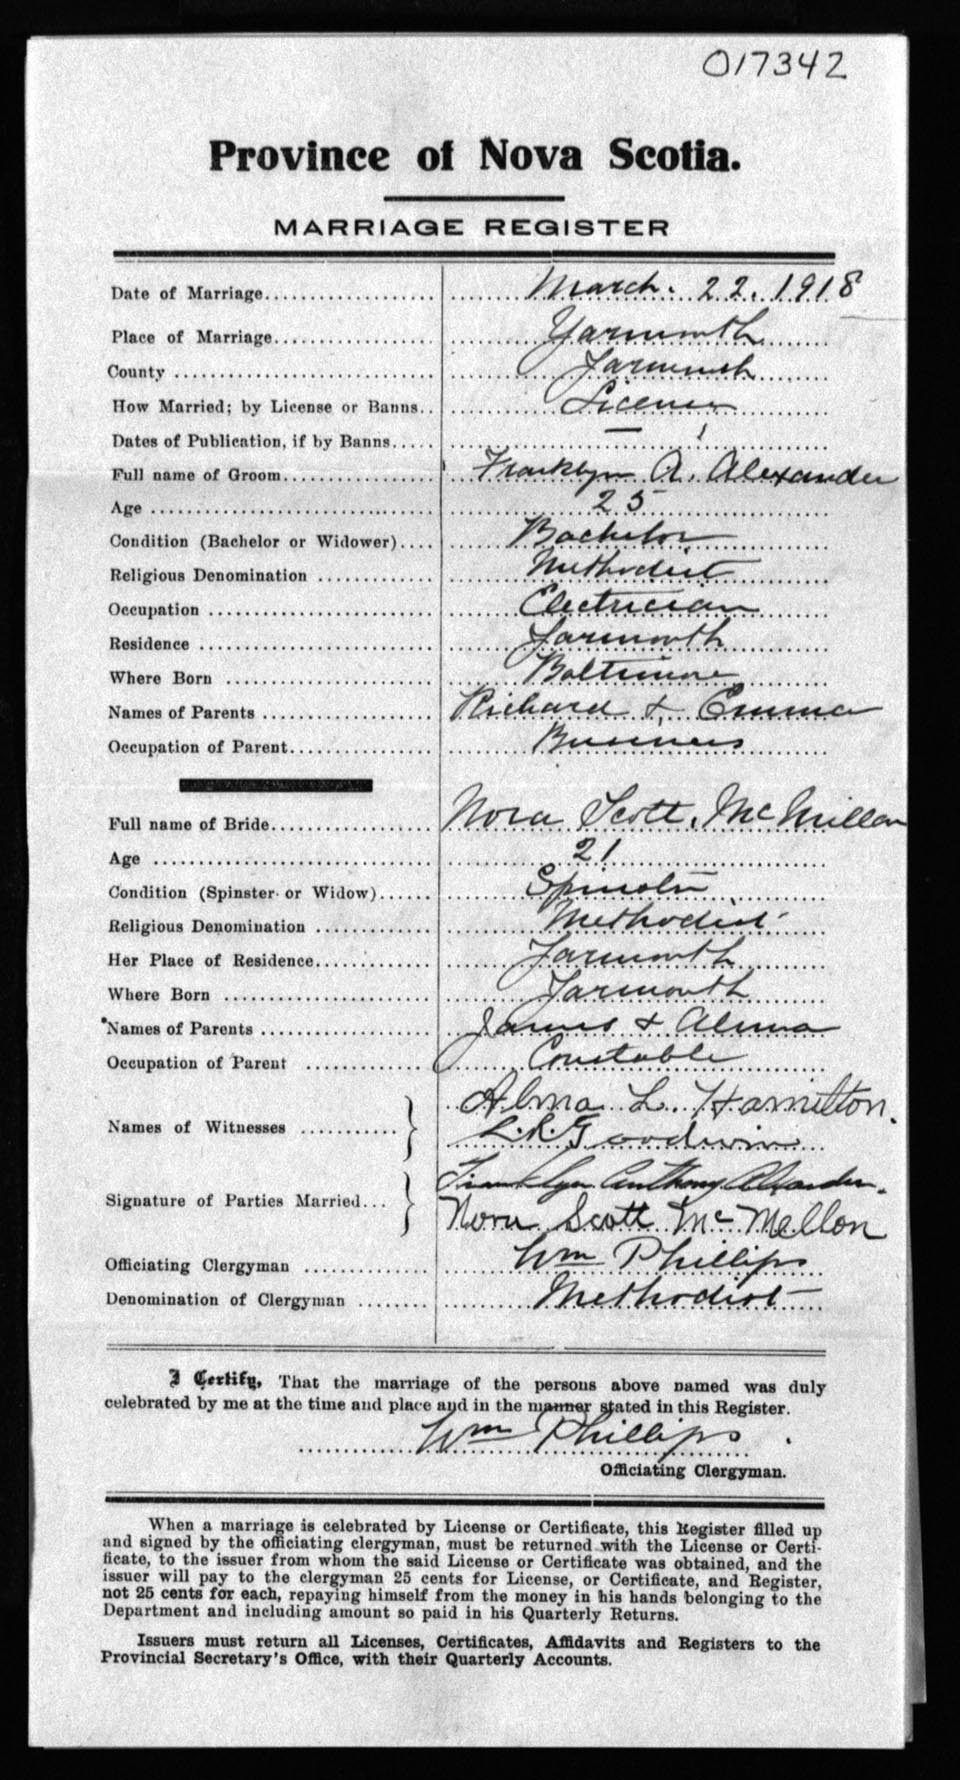 017342
Province of Nova Scotia.
MARRIAGE REGISTER
Date of Marriage.................... March. 22. 1918
Place of Marriage................... Yarmouth
County .............................. Yarmouth
How Married; by License or Banns.. License
Dates of Publication, if by Banns..... —
Full name of Groom.................. Franklyn A. Alexander
Age ................................. 25
Condition (Bachelor or Widower).... Bachelor
Religious Denomination .............. Methodist
Occupation .......................... Electrician
Residence ........................... Yarmouth
Where Born ......................... Baltimore
Names of Parents .................... Richard & Emma
Occupation of Parent................. Business
Full name of Bride................... Nora Scott. McMillan
Age ................................. 21
Condition (Spinster or Widow)...... Spinster
Religious Denomination .............. Methodist
Her Place of Residence.............. Yarmouth
Where Born ......................... Yarmouth
Names of Parents .................... James & Alma
Occupation of Parent .............. Constable
Names of Witnesses ........... Alma L. Hamilton.
L. R. Goodwin
Signature of Parties Married... Franklyn Anthony Alexander.
Nora Scott McMellon
Officiating Clergyman .............. Wm Phillips
Denomination of Clergyman ........ Methodist
I Certify, That the marriage of the persons above named was duly
celebrated by me at the time and place and in the manner stated in this Register.
Wm Phillips
Officiating Clergyman.
When a marriage is celebrated by License or Certificate, this Register filled up
and signed by the officiating clergyman, must be returned with the License or Certi-
ficate, to the issuer from whom the said License or Certificate was obtained, and the
issuer will pay to the clergyman 25 cents for License, or Certificate, and Register,
not 25 cents for each, repaying himself from the money in his hands belonging to the
Department and including amount so paid in his Quarterly Returns.
Issuers must return all Licenses, Certificates, Affidavits and Registers to the
Provincial Secretary's Office, with their Quarterly Accounts.